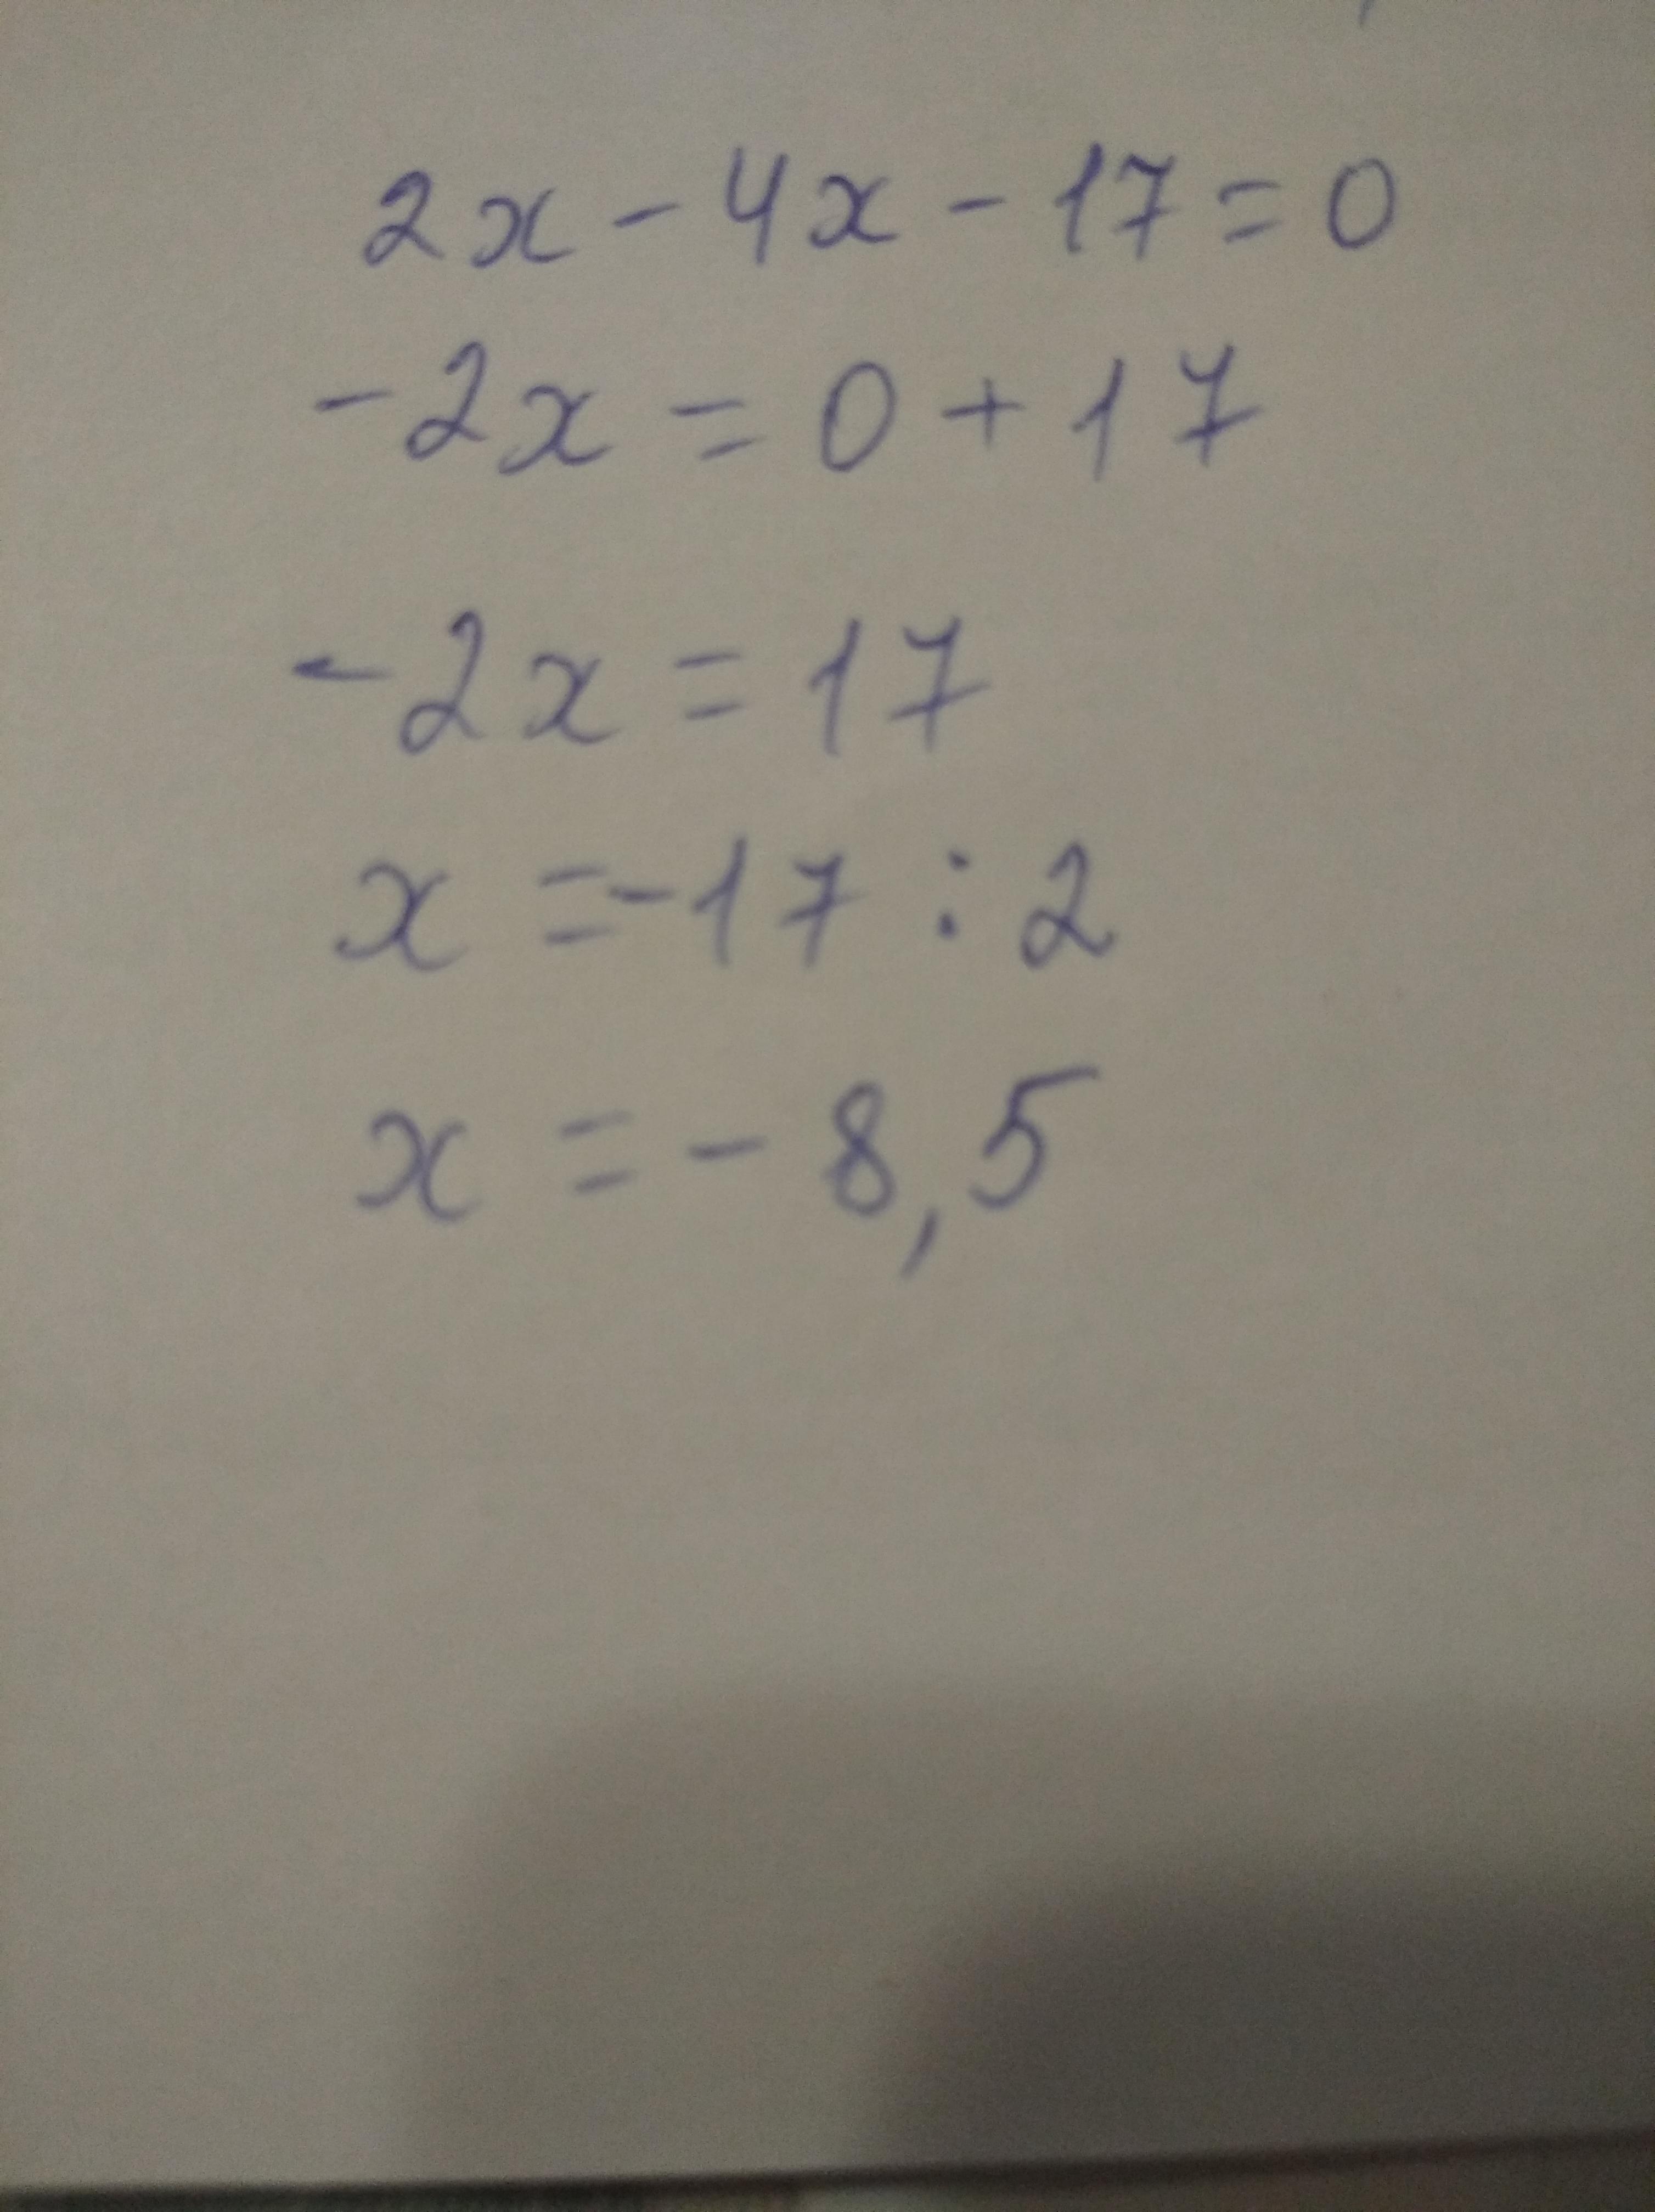 2x - 4x - 17 = 0
-2x = 0 + 17
-2x = 17
x = -17 : 2
x = -8,5